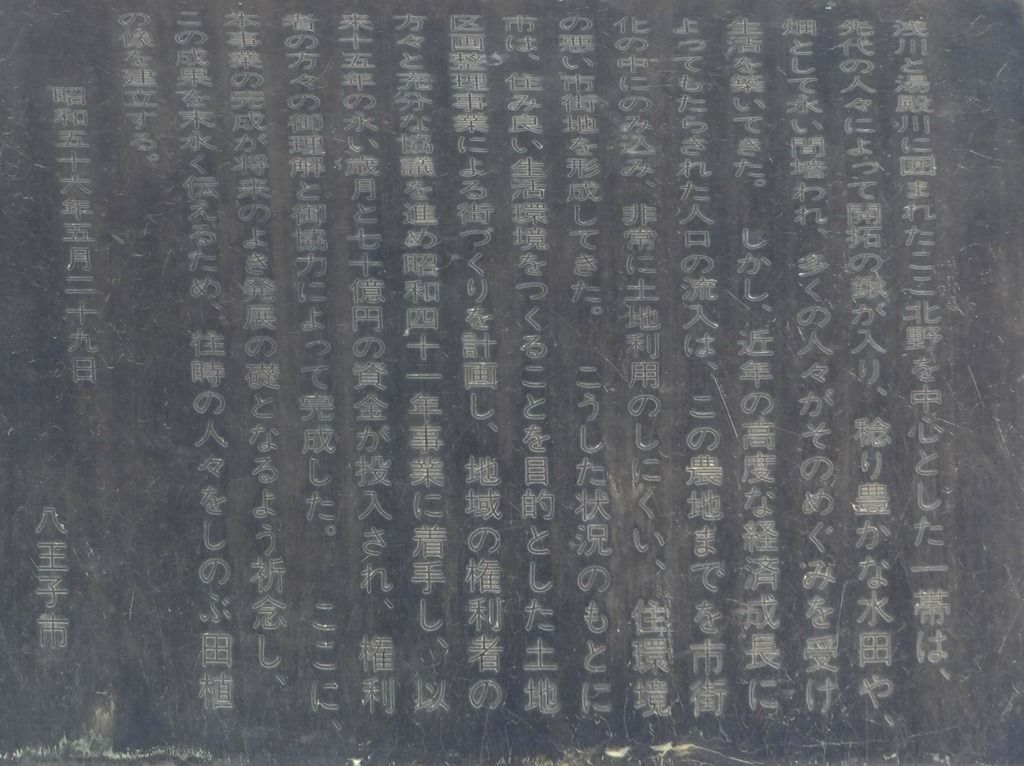 浅川と湯殿川に囲まれたここ北野を中心とした一帯は、
先代の人々によって開拓の鍬が入り、稔り豊かな水田や、
畑として永い間培われ、多くの人々がそのめぐみを受け
生活を築いてきた。しかし、近年の高度な経済成長に
よってもたらされた人口の流入は、この農地までを市街
化の中にのみ込み、非常に土地利用のしにくい、住環境
の悪い市街地を形成してきた。こうした状況のもとに
市は、住み良い生活環境をつくることを目的とした土地
区画整理事業による街づくりを計画し、地域の権利者の
方々と充分な協議を進め昭和四十一年事業に着手し、以
来十五年の永い歳月と七十億円の資金が投入され、権利
者の方々の御理解と御協力によって完成した。ここに、
本事業の完成が将来のよき発展の礎となるよう祈念し、
この成果を末永く伝えるため、往時の人々をしのぶ田植
の像を建立する。
昭和五十六年五月二十九日
八王子市